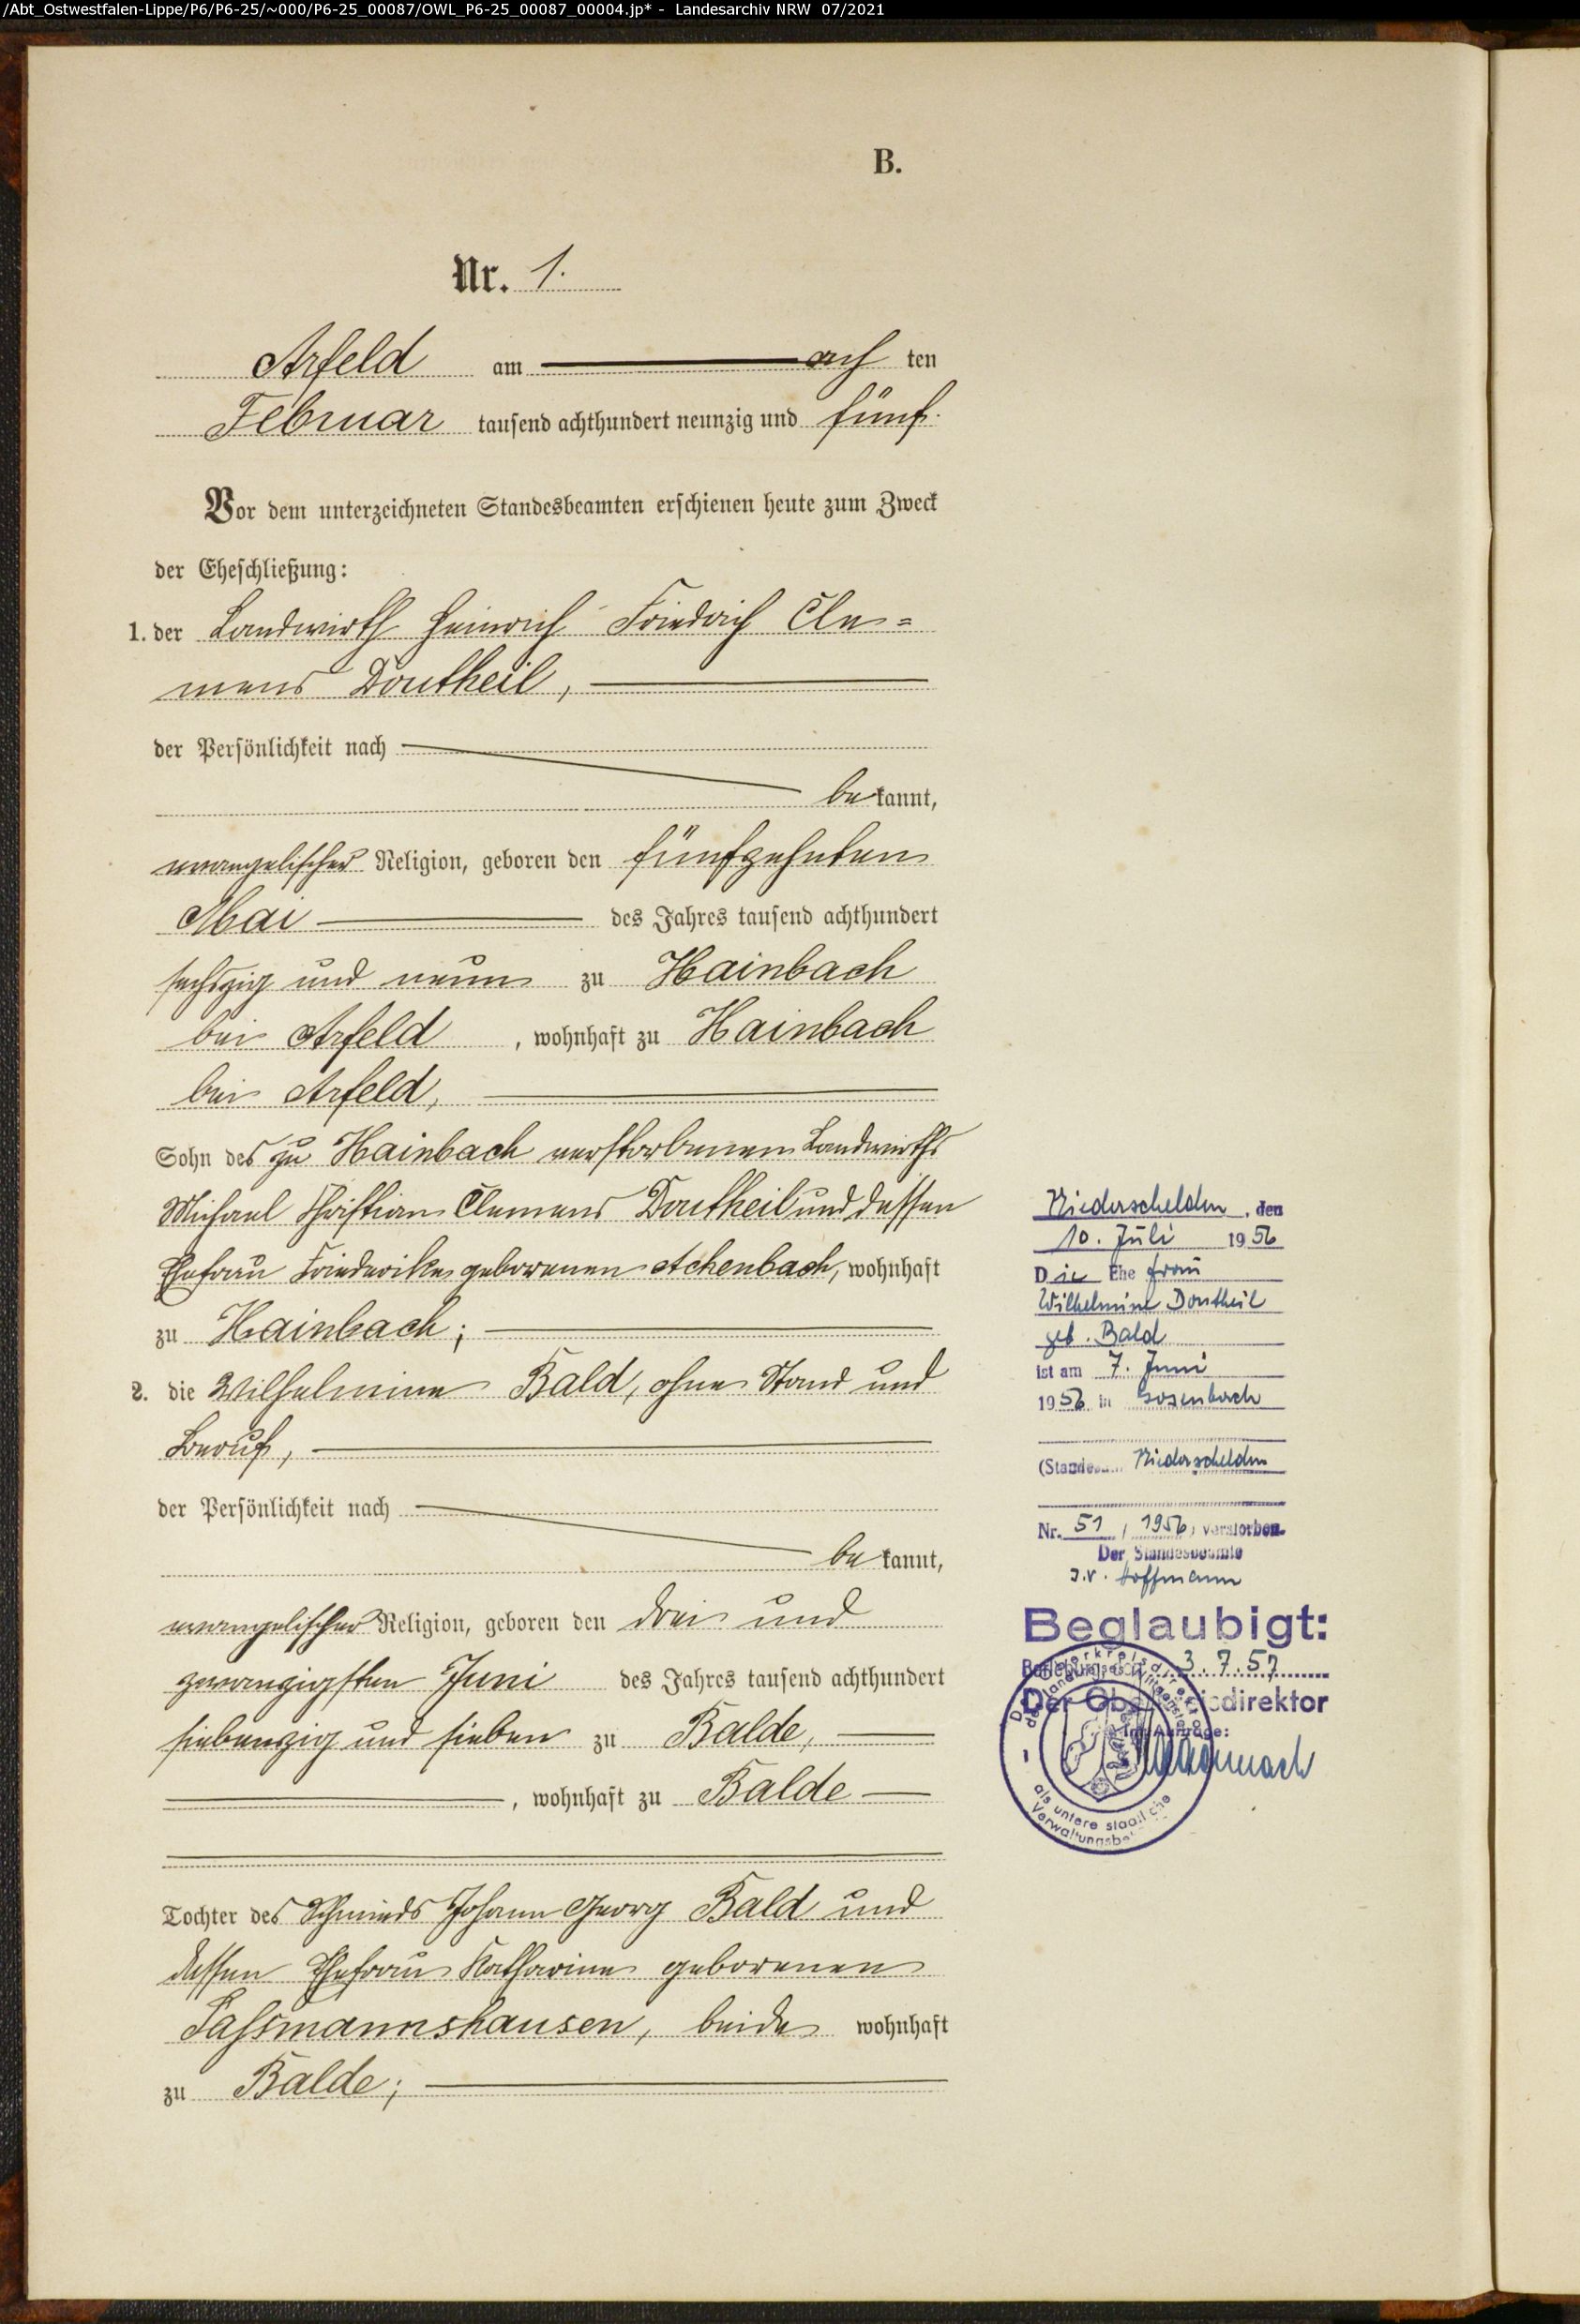 /Abt_Ostwestfalen-Lippe/P6/P6-25/~000/P6-25_00087/OWL_P6-25_00087_00004.jp* - Landesarchiv NRW 07/2021
B.
Nr. 1.
Arfeld am ach ten
Februar tausend achthundert neunzig und fünf.
Vor dem unterzeichneten Standesbeamten erschienen heute zum Zweck
der Eheschließung:
1. der Landwirth Heinrich Friedrich Cle=
mens Dontheil,
der Persönlichkeit nach
be kannt,
evangelischer Religion, geboren den fünfzehnten
Mai des Jahres tausend achthundert
sechszig und neun zu Hainbach
bei Arfeld, wohnhaft zu Hainbach
bei Arfeld,
Sohn des zu Hainbach verstorbenen Landwirths
Michael Christian Clemens Dontheil und dessen
Ehefrau Friederike geborenen Achenbach, wohnhaft
zu Hainbach;
2. die Wilhelmine Bald, ohne Stand und
Beruf,
der Persönlichkeit nach
be kannt,
evangelischer Religion, geboren den drei und
zwanzigsten Juni des Jahres tausend achthundert
siebenzig und sieben zu Balde,
, wohnhaft zu Balde
Tochter des Schmieds Johann Georg Bald und
dessen Ehefrau Katharine geborenen
Lassmannshausen, beide wohnhaft
zu Balde;
Niederschelden, den
10. Juli 1956
Die Ehefrau
Wilhelmine Dontheil
geb. Bald
ist am 7. Juni
1956 in Gosenbach
(Standesamt Niederschelden
Nr. 51 / 1956) verstorben.
Der Standesbeamte
I.V. Hoffmann
Beglaubigt:
3.7.57
Der Oberkreisdirektor
Im Auftrage:
als untere staatliche
Verwaltungsbe